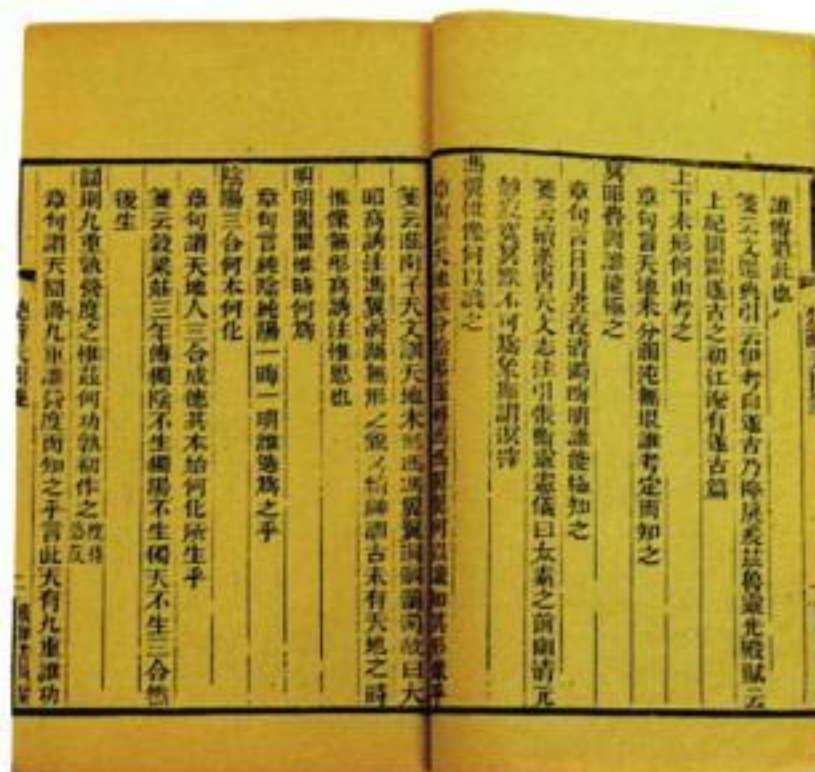 誰傳道此也
箋云文選典引云伊考自遂古乃降戾爰茲魯靈光殿賦云
上紀開闢遂古之初江淹有遂古篇
上下未形何由考之
章句言天地未分溷沌無垠誰考定而知之
冥昭瞢闇誰能極之
章句言日月晝夜清濁晦明誰能極知之
箋云續漢書天文志注引張衡靈憲儀曰太素之前幽清元
靜寂寞冥默不可為象斯謂溟涬
馮翼惟像何以識之
章句言天地既分陰陽
箋云淮南子天文訓天地未形馮馮翼翼洞洞灟灟故曰大
昭高誘注馮翼洞灟無形之貌又精神訓古未有天地之時
惟像無形高誘注惟思也
明明闇闇惟時何為
章句言純陰純陽一晦一明誰造為之乎
陰陽三合何本何化
章句謂天地人三合成德其本始何化所生乎
箋云穀梁莊三年傳獨陰不生獨陽不生獨天不生三合然
後生
圜則九重孰營度之惟茲何功孰初作之
章句謂天圜而九重誰營度而知之乎言此天有九重誰功